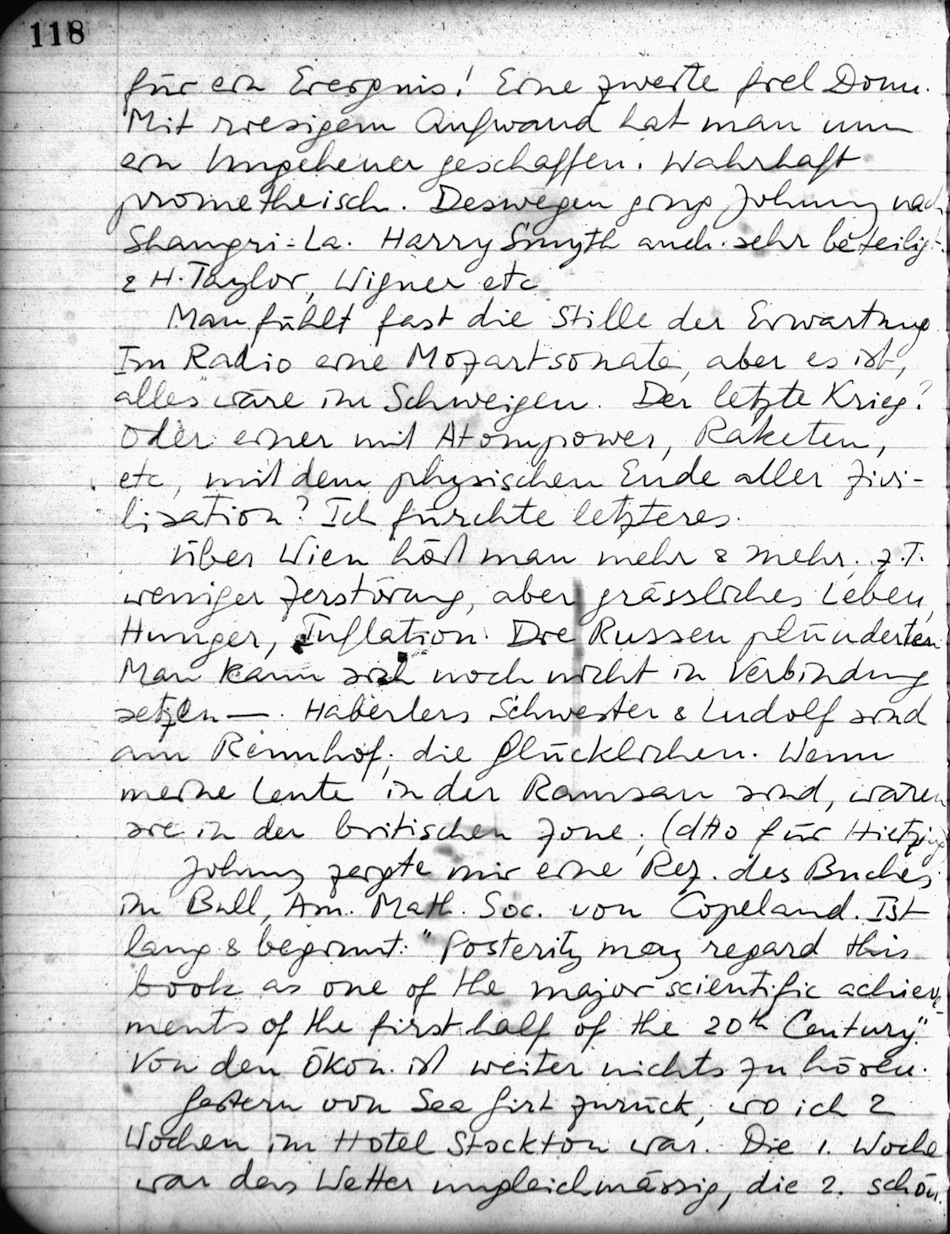 118
für ein Ereignis! Eine zweite fiel Donn.
Mit riesigem Aufwand hat man nun
ein Ungeheuer geschaffen. Wahrhaft
prometheisch. Deswegen ging Johnny nach
Shangri-La. Harry Smyth auch sehr beteiligt
& H. Taylor, Wigner etc
Man fühlt fast die Stille der Erwartung.
Im Radio eine Mozartsonate, aber es ist,
alles wäre im Schweigen. Der letzte Krieg?
Oder einer mit Atompower, Raketen,
etc, mit dem physischen Ende aller Zivi-
lisation? Ich fürchte letzteres.
Über Wien hört man mehr & mehr. z.T.
weniger Zerstörung, aber grässliches Leben,
Hunger, Inflation. Die Russen plünderten
Man kann sich noch nicht in Verbindung
setzen —. Haberlers Schwester & Ludolf sind
am Rennhof; die Glücklichen. Wenn
meine Leute in der Ramsau sind, wären
sie in der britischen Zone; (dtto für Hietzing
Johnny zeigte mir eine Rez. des Buches
im Bull, Am. Math. Soc. von Copeland. Ist
lang & beginnt: "Posterity may regard this
book as one of the major scientific achieve-
ments of the first half of the 20th Century"
Von den Ökon. ist weiter nichts zu hören.
Gestern von Sea Girt zurück, wo ich 2
Wochen im Hotel Stockton war. Die 1. Woche
war das Wetter ungleichmässig, die 2. schön.